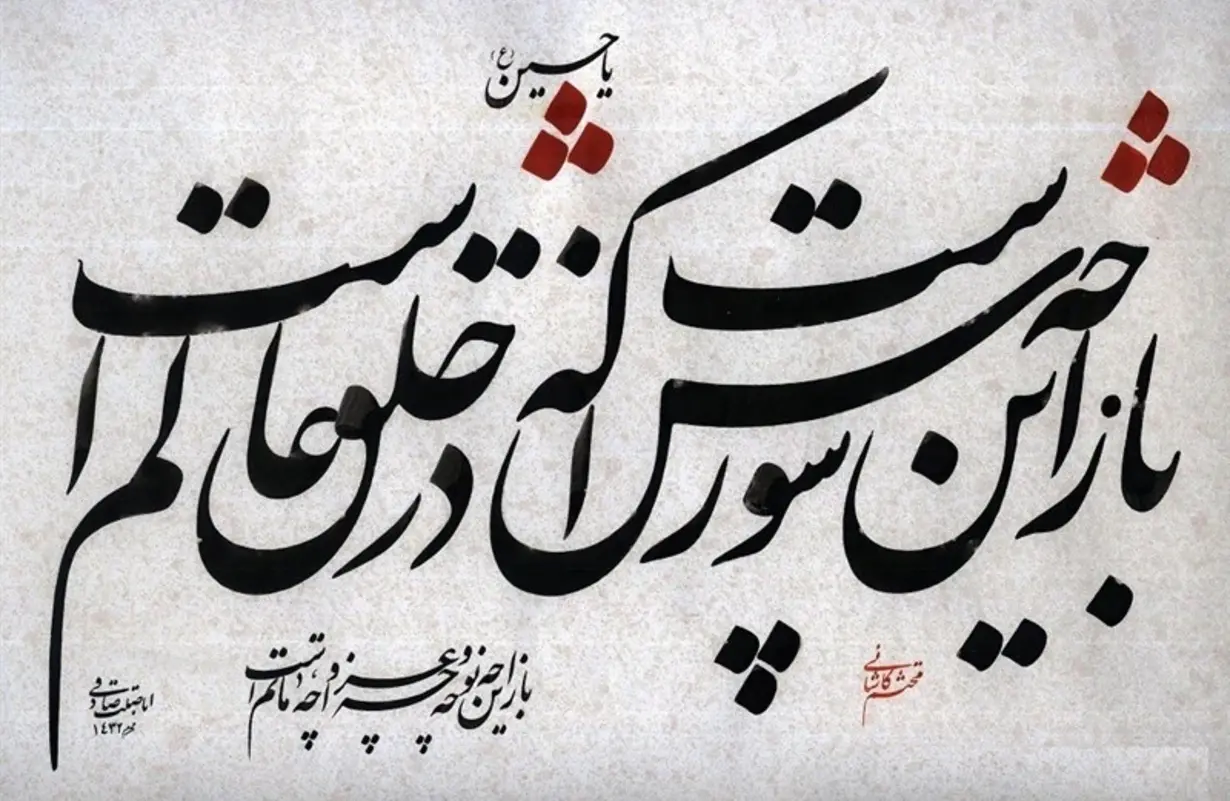 یا حسین (ع)
باز این چه شورش است که در خلق عالم است
باز این چه نوحه و چه عزا و چه ماتم است
محتشم کاشانی
اباصلت صادقی
۱۴۳۲